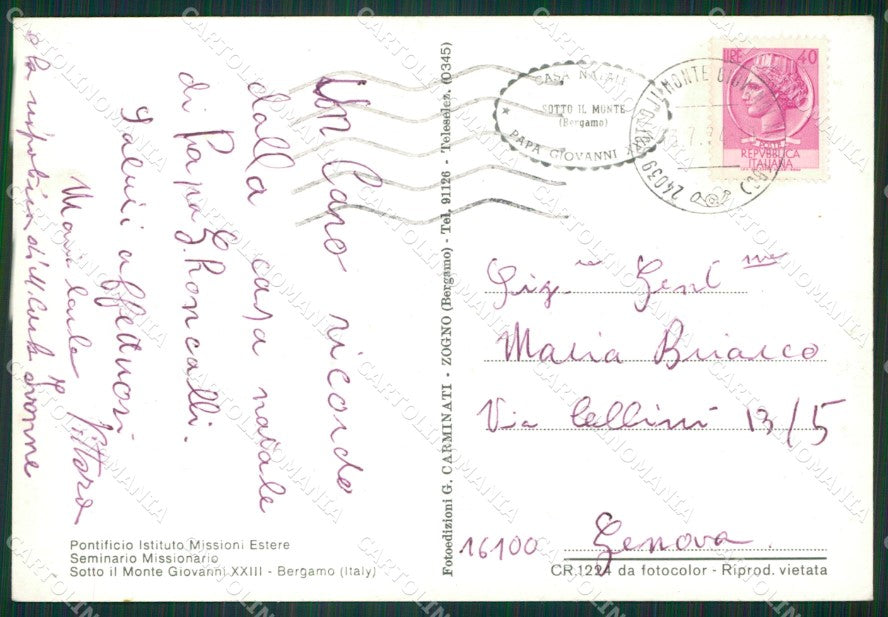 Un Caro ricordo
dalla casa natale
di Papa G. Roncalli.
Saluti affettuosi
Maria Carla e Vittoro
Pontificio Istituto Missioni Estere
Seminario Missionario
Sotto il Monte Giovanni XXIII - Bergamo (Italy)
Fotoedizioni G. CARMINATI - ZOGNO (Bergamo) - Tel. 91126 - Teleselez. (0345)
CASA NATALE
SOTTO IL MONTE
(Bergamo)
PAPA GIOVANNI
24039 SOTTO IL MONTE
LIRE 40
POSTE
REPVBBLICA
ITALIANA
Sig.ra Gent.ma
Maria Briasco
Via Cellini 13/5
16100 Genova
CR.1224 da fotocolor - Riprod. vietata
CARTOLINOMANIA